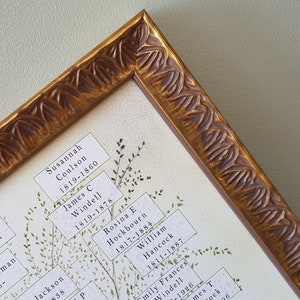 Susannah
Coulson
1819-1860
James C
Windell
1819-1878
Rosina E
Hockbourn
1817-1885
William
Hancock
1811-1887
Emily Frances
Windell
1986
Jackson